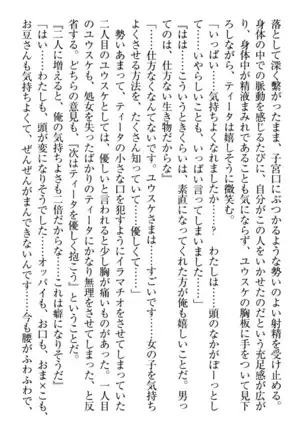 落として深く繋がったまま、子宮口にぶつかるような勢いのよい射精を受け止める。
身体の中での脈動を感じるたびに、自分がこの人をいかせたのだという充足感が広が
り、身体中が精液まみれであることも気にならず、ユウスケの胸板に手をついて見下
ろしながら、ティータは嬉しそうに微笑む。
「いっぱい……気持ちよくなれましたか……? わたしは……頭のなかがぼーっとし
て……いやらしいことも、いっぱい言ってしまいました……」
『はは……こういうときは、素直になってくれた方が俺も嬉しいことだ。男っ
てのは、仕方ない生き物だからな』
「……仕方なくなんてないです、ユウスケさまは……すごいです……女の子を気持ち
よくさせる方法を、たくさん知っていて……優しくて……」
二人目のユウスケとしては、優しいと言われると少し胸が痛いものがあった。一人目
勢いあまって、ティータの小さな口を犯すようにイラマチオをさせてしまったし、
のユウスケも、処女を失ったばかりのティータにかなり無理をさせてしまった、と反
省する。どちらの意見も、『次はティータを優しく抱こう』ということだ。
『二人に増えると、俺の気持ちよさも二倍だからな……これは癖になりそうだ』
「はい……わたしも、頭が変になりそうでした……オッパイも、お口も、おま×こも、
お豆さんも気持ちよくて、ぜんぜんがまんできないんです……今も腰がふわふわで、